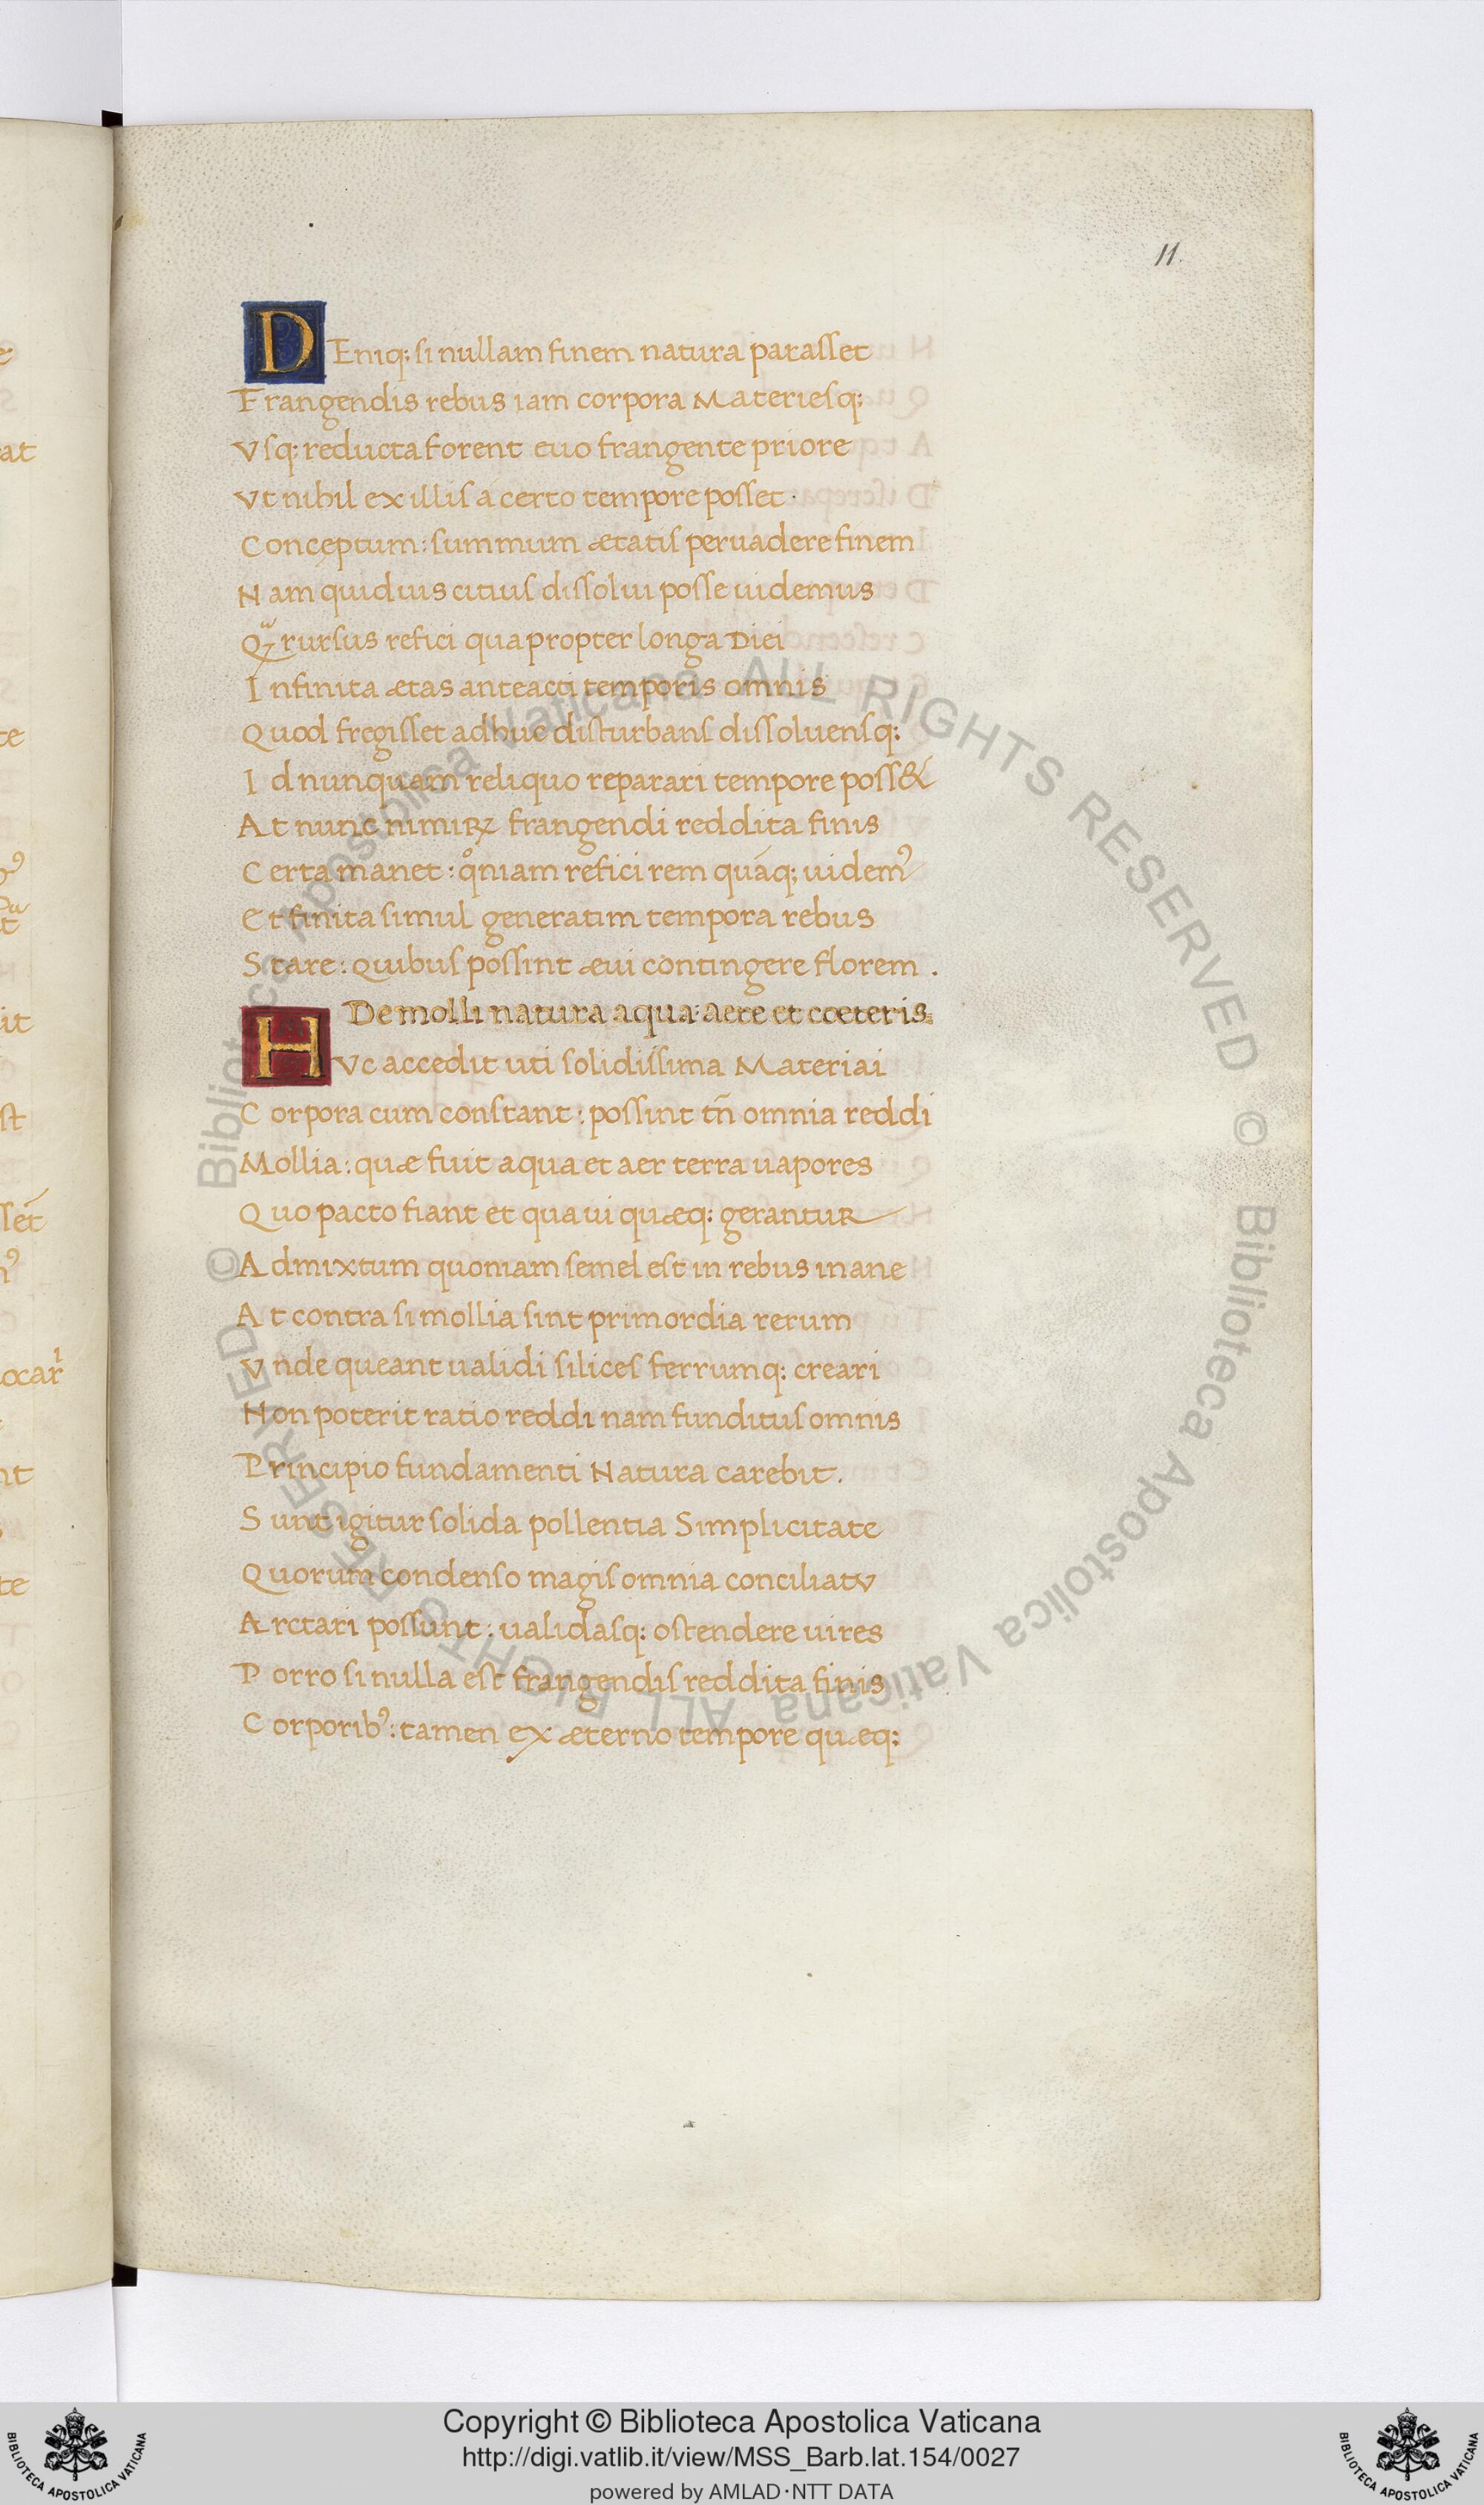 11.
DEniq; si nullam finem natura parasset
Frangendis rebus iam corpora Materiesq;
Vsq; reducta forent euo frangente priore
Vt nihil ex illis á certo tempore posset.
Conceptum: summum ætatis peruadere finem
Nam quiduis citius dissolui posse uidemus
rursus refici quapropter longa Diei
Infinita ætas anteacti temporis omnis
Quod fregisset adhuc disturbans dissoluensq;
Id nunquam reliquo reparari tempore poss&
At nunc nimiꝝ frangendi reddita finis
Certa manet: qͦniam refici rem quáq; uidemꝰ
Et finita simul generatim tempora rebus
Stare: quibus possint æui contingere florem.
De molli natura aqua: aere et cœteris.
HVc accedit uti solidissima Materiai
Corpora cum constant: possint tn̄ omnia reddi
Mollia: quæ fuit aqua et aer terra uapores
Quo pacto fiant et qua ui quæq; gerantur
Admixtum quoniam semel est in rebus inane
At contra si mollia sint primordia rerum
Vnde queant ualidi silices ferrumq; creari
Non poterit ratio reddi nam funditus omnis
Principio fundamenti Natura carebit.
Sunt igitur solida pollentia Simplicitate
Quorum condenso magis omnia conciliatv
Arctari possunt: ualidasq; ostendere uires
Porro si nulla est frangendis reddita finis
Corporibꝰ: tamen ex æterno tempore quæq;
© Biblioteca Apostolica Vaticana ALL RIGHTS RESERVED © Biblioteca Apostolica Vaticana ALL RIGHTS RESERVED
Copyright © Biblioteca Apostolica Vaticana
http://digi.vatlib.it/view/MSS_Barb.lat.154/0027
powered by AMLAD·NTT DATA
BIBLIOTECA APOSTOLICA VATICANA
BIBLIOTECA APOSTOLICA VATICANA